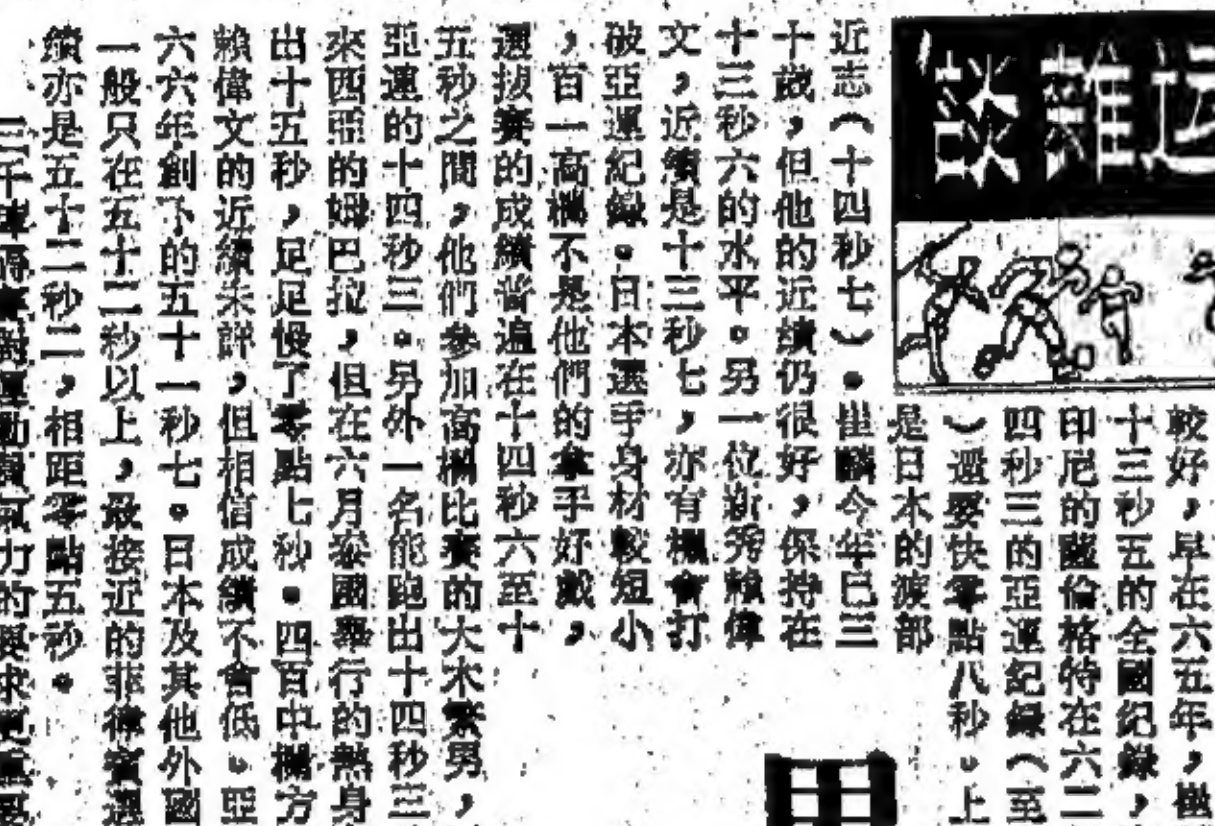 运雜談
較好，早在六五年，崔
十三秒五的全國紀錄，
印尼的薩倫格特在六二
四秒三的亞運紀錄（至
）還要快零點八秒。上
是日本的渡部
近志（十四秒七）。崔麟今年已三
十歲，但他的近績仍很好，保持在
十三秒六的水平。另一位新秀賴偉
文，近績是十三秒七，亦有機會打
破亞運紀錄。日本選手身材較短小
，百一高欄不是他們的拿手好戲，
選拔賽的成績普遍在十四秒六至十
五秒之間，他們參加高欄比賽的大木繁男，
亞運的十四秒三。另外一名能跑出十四秒三
來西亞的姆巴拉，但在六月泰國舉行的熱身
出十五秒，足足慢了零點七秒。四百中欄方
賴偉文的近績未詳，但相信成績不會低。亞
六六年創下的五十一秒七。日本及其他外國
一般只在五十二秒以上，最接近的菲律賓選
績亦是五十二秒二，相距零點五秒。
三千障碍賽對運動員氣力的要求更重要
男